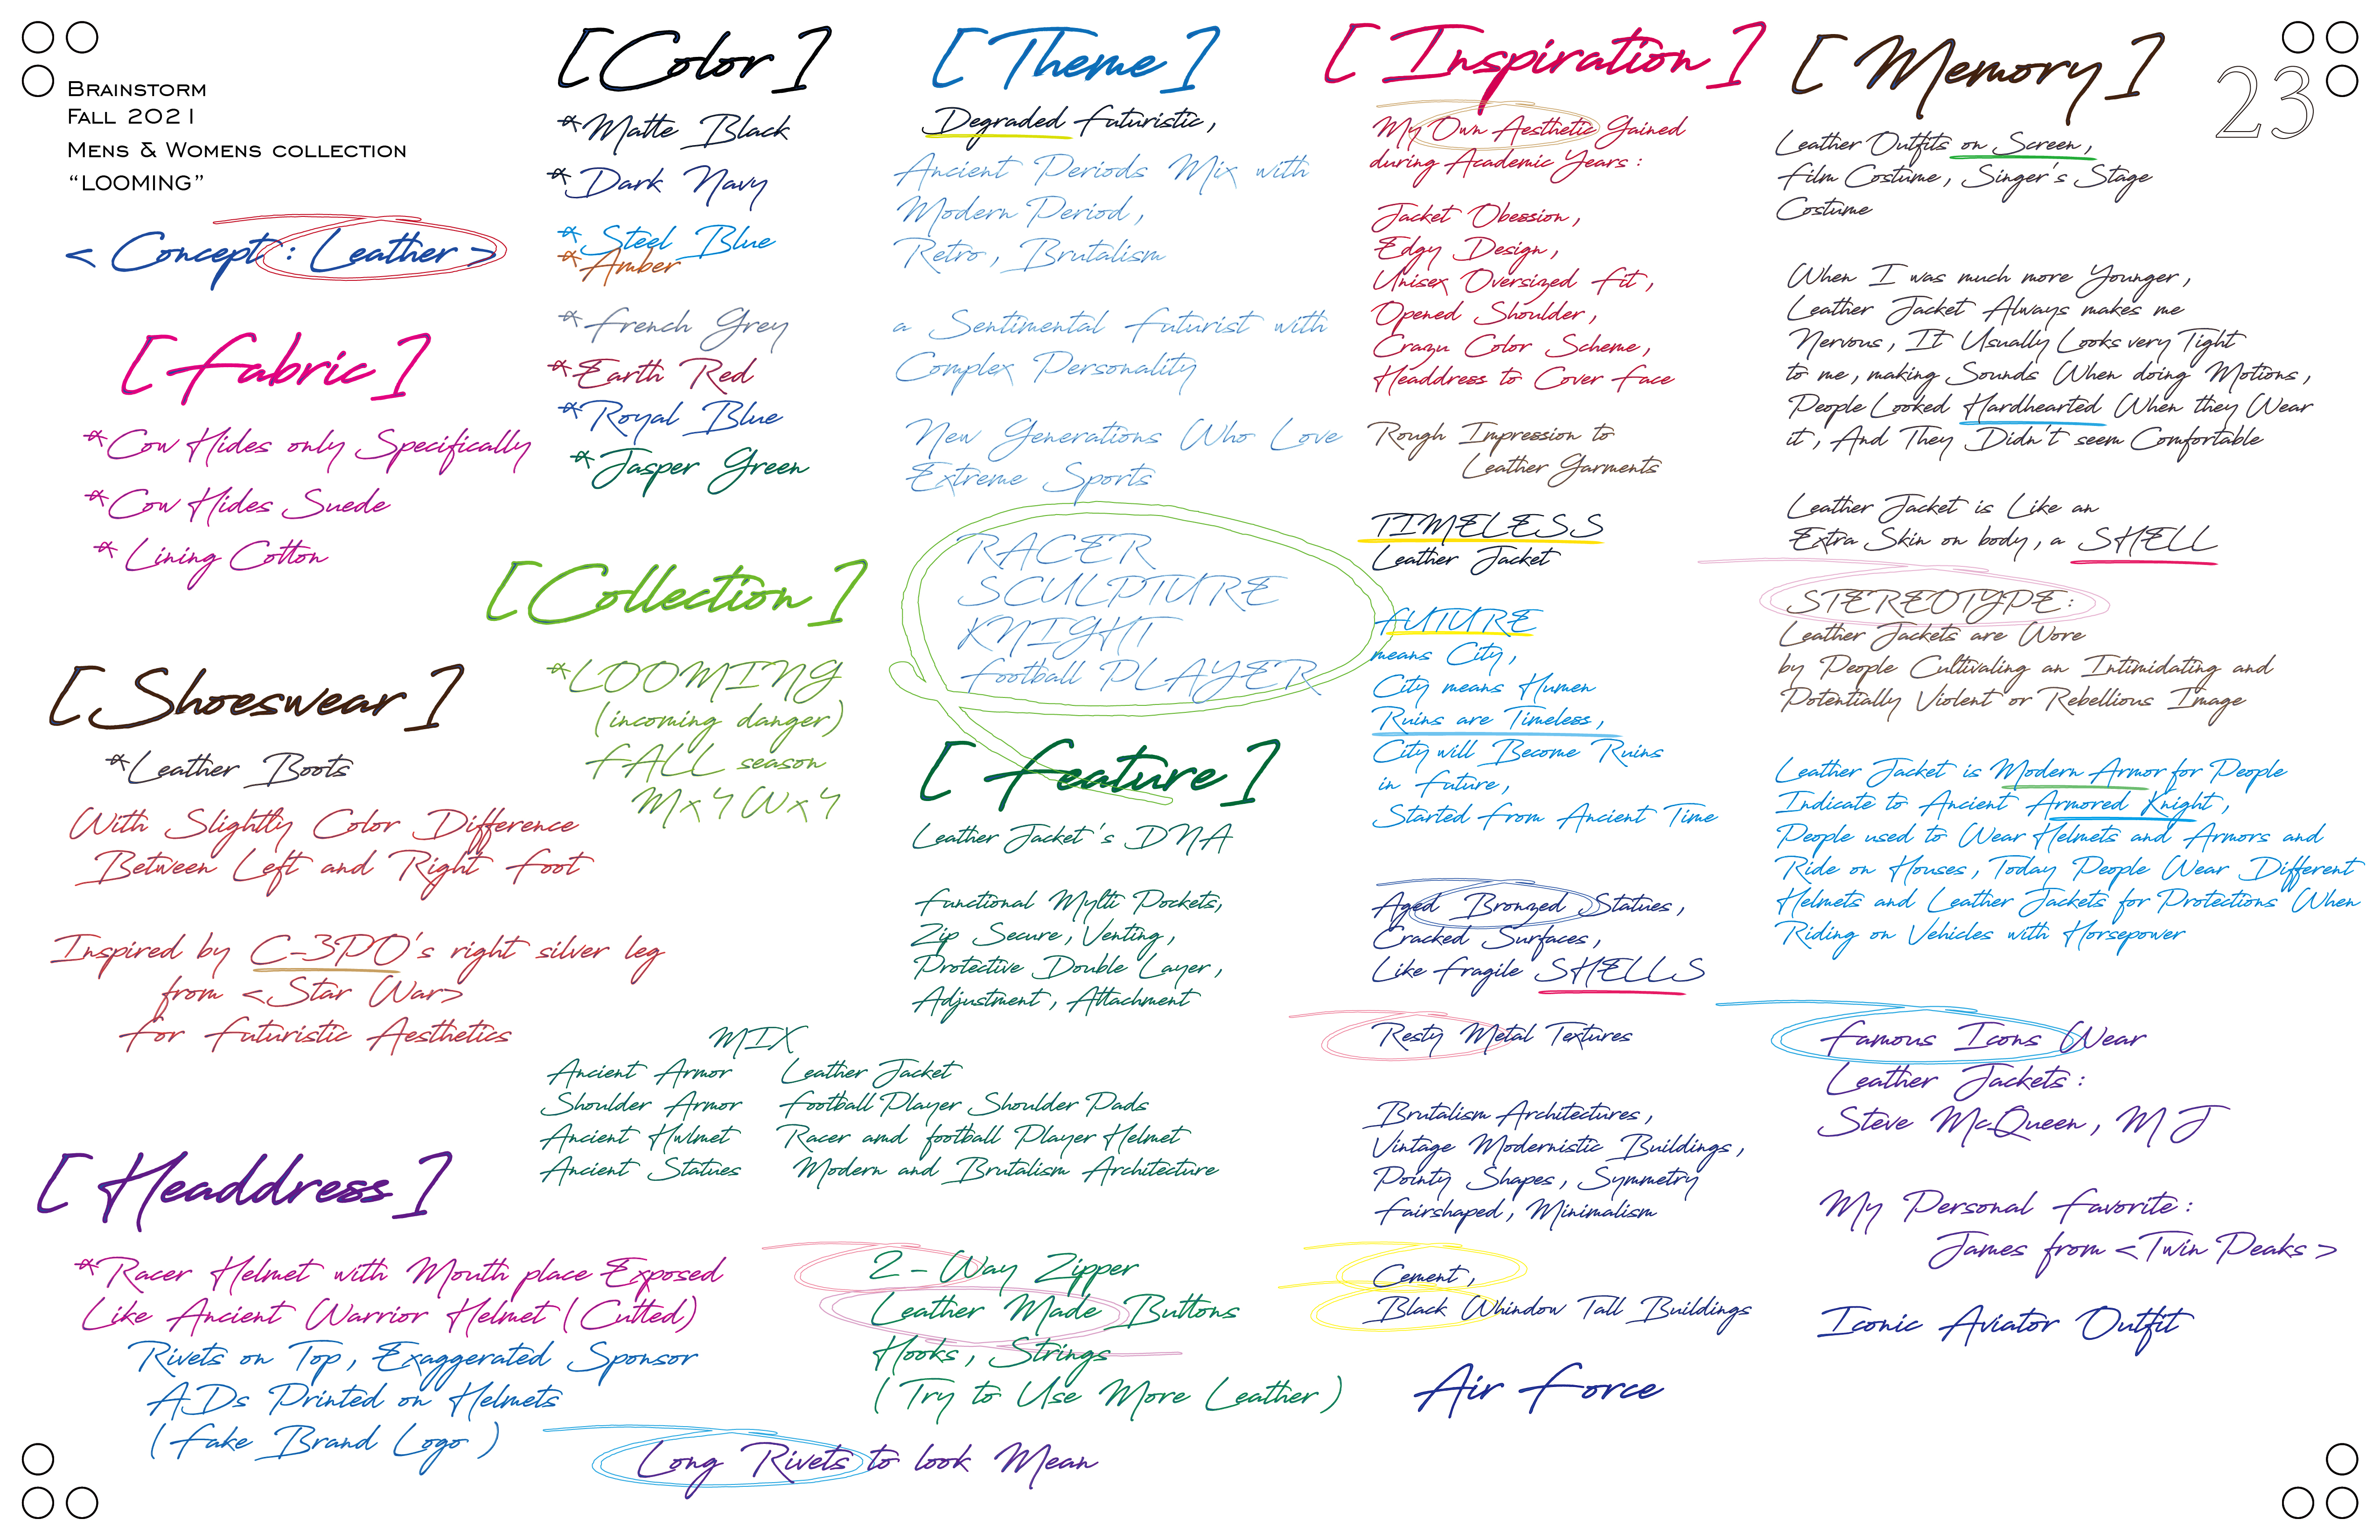 BRAINSTORM
FALL 2021
MENS & WOMENS COLLECTION
“LOOMING”
< Concept : Leather >
[ Fabric ]
*Cow Hides only Specifically
*Cow Hides Suede
* Lining Cotton
[ Shoeswear ]
*Leather Boots
With Slightly Color Difference
Between Left and Right Foot
Inspired by C-3PO's right silver leg
from <Star War>
for Futuristic Aesthetics
[ Headdress ]
*Racer Helmet with Mouth place Exposed
Like Ancient Warrior Helmet ( Cutted)
Rivets on Top, Exaggerated Sponsor
ADs Printed on Helmets
( Fake Brand Logo )
[ Color ]
*Matte Black
*Dark Navy
*Steel Blue
*Amber
*French Grey
*Earth Red
*Royal Blue
*Jasper Green
[ Collection ]
*LOOMING
(incoming danger)
FALL season
Mx4 Wx4
[ Theme ]
Degraded Futuristic,
Ancient Periods Mix with
Modern Period,
Retro, Brutalism
a Sentimental Futurist with
Complex Personality
New Generations Who Love
Extreme Sports
RACER
SCULPTURE
KNIGHT
Football PLAYER
[ Feature ]
Leather Jacket's DNA
Functional Mylti Pockets,
Zip Secure, Venting,
Protective Double Layer,
Adjustment, Attachment
MIX
Ancient Armor Leather Jacket
Shoulder Armor Football Player Shoulder Pads
Ancient Hwlmet Racer amd football Player Helmet
Ancient Statues Modern and Brutalism Architecture
2 - Way Zipper
Leather Made Buttons
Hooks, Strings
( Try to Use More Leather )
Long Rivets to look Mean
[ Inspiration ]
My Own Aesthetic Gained
during Academic Years :
Jacket Obession,
Edgy Design,
Unisex Oversized Fit,
Opened Shoulder,
Crazu Color Scheme,
Headdress to Cover Face
Rough Impression to
Leather Garments
TIMELESS
Leather Jacket
FUTURE
means City,
City means Humen
Ruins are Timeless,
City will Become Ruins
in Future,
Started From Ancient Time
Aged Bronzed Statues,
Cracked Surfaces,
Like Fragile SHELLS
Resty Metal Textures
Brutalism Architectures,
Vintage Modernistic Buildings,
Pointy Shapes, Symmetry
Fairshaped, Minimalism
Cement,
Black Whindow Tall Buildings
Air Force
[ Memory ]
Leather Outfits on Screen,
Film Costume, Singer's Stage
Costume
When I was much more Younger,
Leather Jacket Always makes me
Nervous, It Usually Looks very Tight
to me, making Sounds When doing Motions,
People Looked Hardhearted When they Wear
it, And They Didn't seem Comfortable
Leather Jacket is Like an
Extra Skin on body, a SHELL
STEREOTYPE:
Leather Jackets are Wore
by People Cultivaling an Intimidating and
Potentially Violent or Rebellious Image
Leather Jacket is Modern Armor for People
Indicate to Ancient Armored Knight,
People used to Wear Helmets and Armors and
Ride on Houses, Today People Wear Different
Helmets and Leather Jackets for Protections When
Riding on Vehicles with Horsepower
Famous Icons Wear
Leather Jackets :
Steve McQueen, MJ
My Personal Favorite :
James from <Twin Peaks >
Iconic Aviator Outfit
23